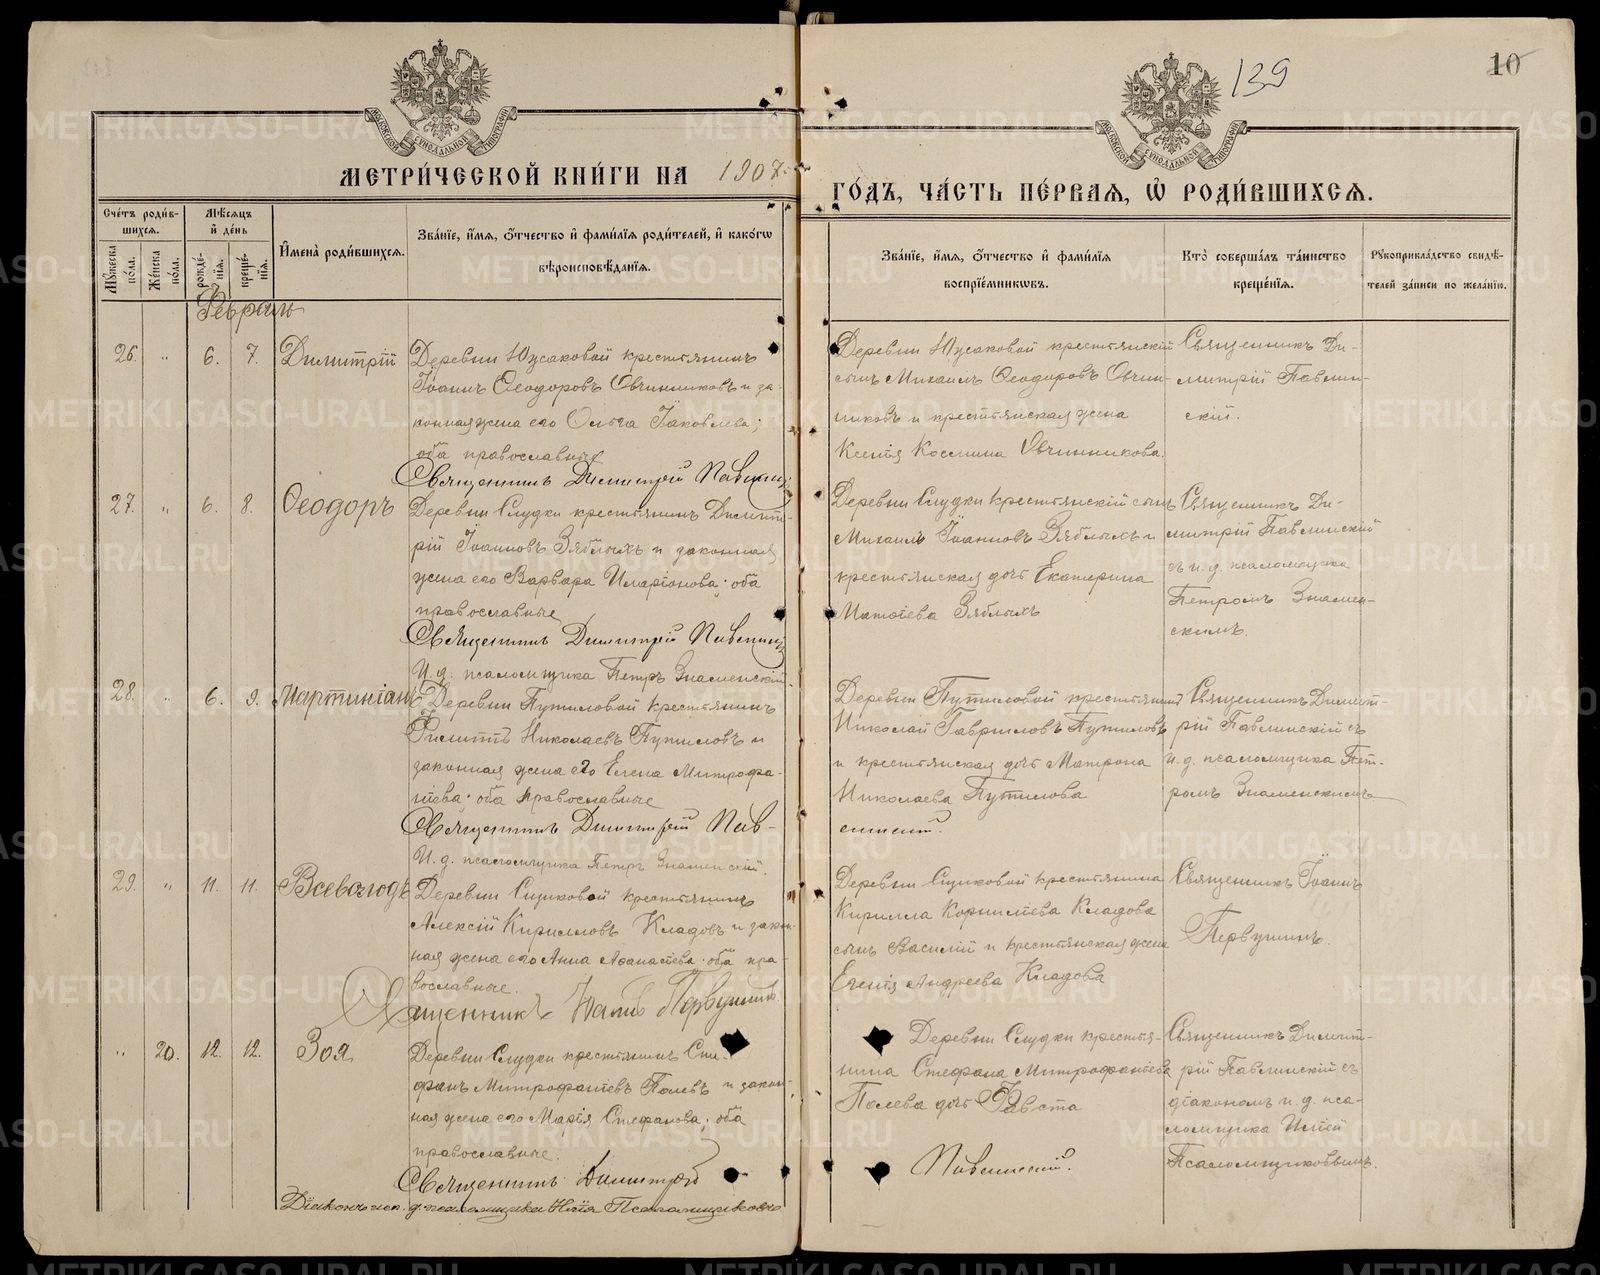 139
10
МОСКОВСКОЙ СѴНОДАЛЬНОЙ ТИПОГРАФІИ
МОСКОВСКОЙ СѴНОДАЛЬНОЙ ТИПОГРАФІИ
МЕТРИ́ЧЕСКОЙ КНИ́ГИ НА 1907.
ГО́ДЪ, ЧА́СТЬ ПЕ́РВАЯ, Ѡ҆ РОДИ́ВШИХСѦ.
Сче́тъ роди́в-
шихся.
Мѣ́сяцъ
и҆ де́нь
Мꙋ́жеска по́ла.
Же́нска по́ла.
рожде́-нія.
креще́-нія.
И҆мена̀ роди́вшихся.
Зва́ніе, и҆́мя, ѻ҆́тчество и҆ фами́лія роди́телей, и҆ како́гѡ
вѣроисповѣ́данія.
Зва́ніе, и҆́мя, ѻ҆́тчество и҆ фами́лія
воспріе́мниковъ.
Кто̀ соверша́лъ та́инство
креще́нія.
Рꙋкоприкла́дство свидѣ́-
телей за́писи по жела́нію.
Февраль
26. " 6. 7. Димитрій
Деревни Юзаковой крестьянинъ
Іоаннъ Ѳеодоровъ Овчинниковъ и за-
конная жена его Ольга Іаковлева;
оба православные
Священникъ Димитрій Павлинскій
Деревни Юзаковой крестьянскій
сынъ Михаилъ Ѳеодоровъ Овчин-
никовъ и крестьянская жена
Ксенія Космина Овчинникова.
Священникъ Ди-
митрій Павлин-
скій.
27. " 6. 8. Ѳеодоръ
Деревни Слудки крестьянинъ Димит-
рій Іоанновъ Зяблыхъ и законная
жена его Варвара Иларіонова; оба
православные
Священникъ Димитрій Павлинскій
И. д. псаломщика Петръ Знаменскій.
Деревни Слудки крестьянскій сынъ
Михаилъ Іоанновъ Зяблыхъ и
крестьянская дочь Екатерина
Зяблыхъ
Священникъ Ди-
митрій Павлинскій
съ и. д. псаломщика
Петромъ Знамен-
скимъ.
28. " 6. 9. Мартиніанъ
Деревни Путиловой крестьянинъ
Филиппъ Николаевъ Путиловъ и
законная жена его Елена Митрофа-
нова; оба православные
Священникъ Димитрій Пав-
И. д. псаломщика Петръ Знаменскій.
Деревни Путиловой крестьянинъ
Николай Гавриловъ Путиловъ
и крестьянская дочь Матрона
Николаева Путилова
линскій.
Священникъ Димит-
рій Павлинскій съ
и. д. псаломщика Пет-
ромъ Знаменскимъ
29. " 11. 11. Всеволодъ
Деревни крестьянинъ
Алексій Кирилловъ Кладовъ и закон-
ная жена его Анна Аѳанасіева; оба пра-
вославные.
Священникъ Іоаннъ Первушинъ
Деревни крестьянина
Кирилла Корниліева Кладова
сынъ Василій и крестьянская жена
Андреева Кладова
Священникъ Іоаннъ
Первушинъ.
" 20. 12. 12. Зоя
Деревни Слудки крестьянинъ Сте-
фанъ Митрофаніевъ Полевъ и закон-
ная жена его Марія Стефанова; оба
православные.
Священникъ Димитрій
Діаконъ исп. д. псаломщика Илія Псаломщиковъ
Деревни Слудки крестья-
нина Стефана Митрофаніева
Полева дочь Фавста
Павлинскій.
Священникъ Димит-
рій Павлинскій съ
діакономъ и. д. пса-
ломщика Иліей
Псаломщиковымъ.
METRIKI.GASO-URAL.RU